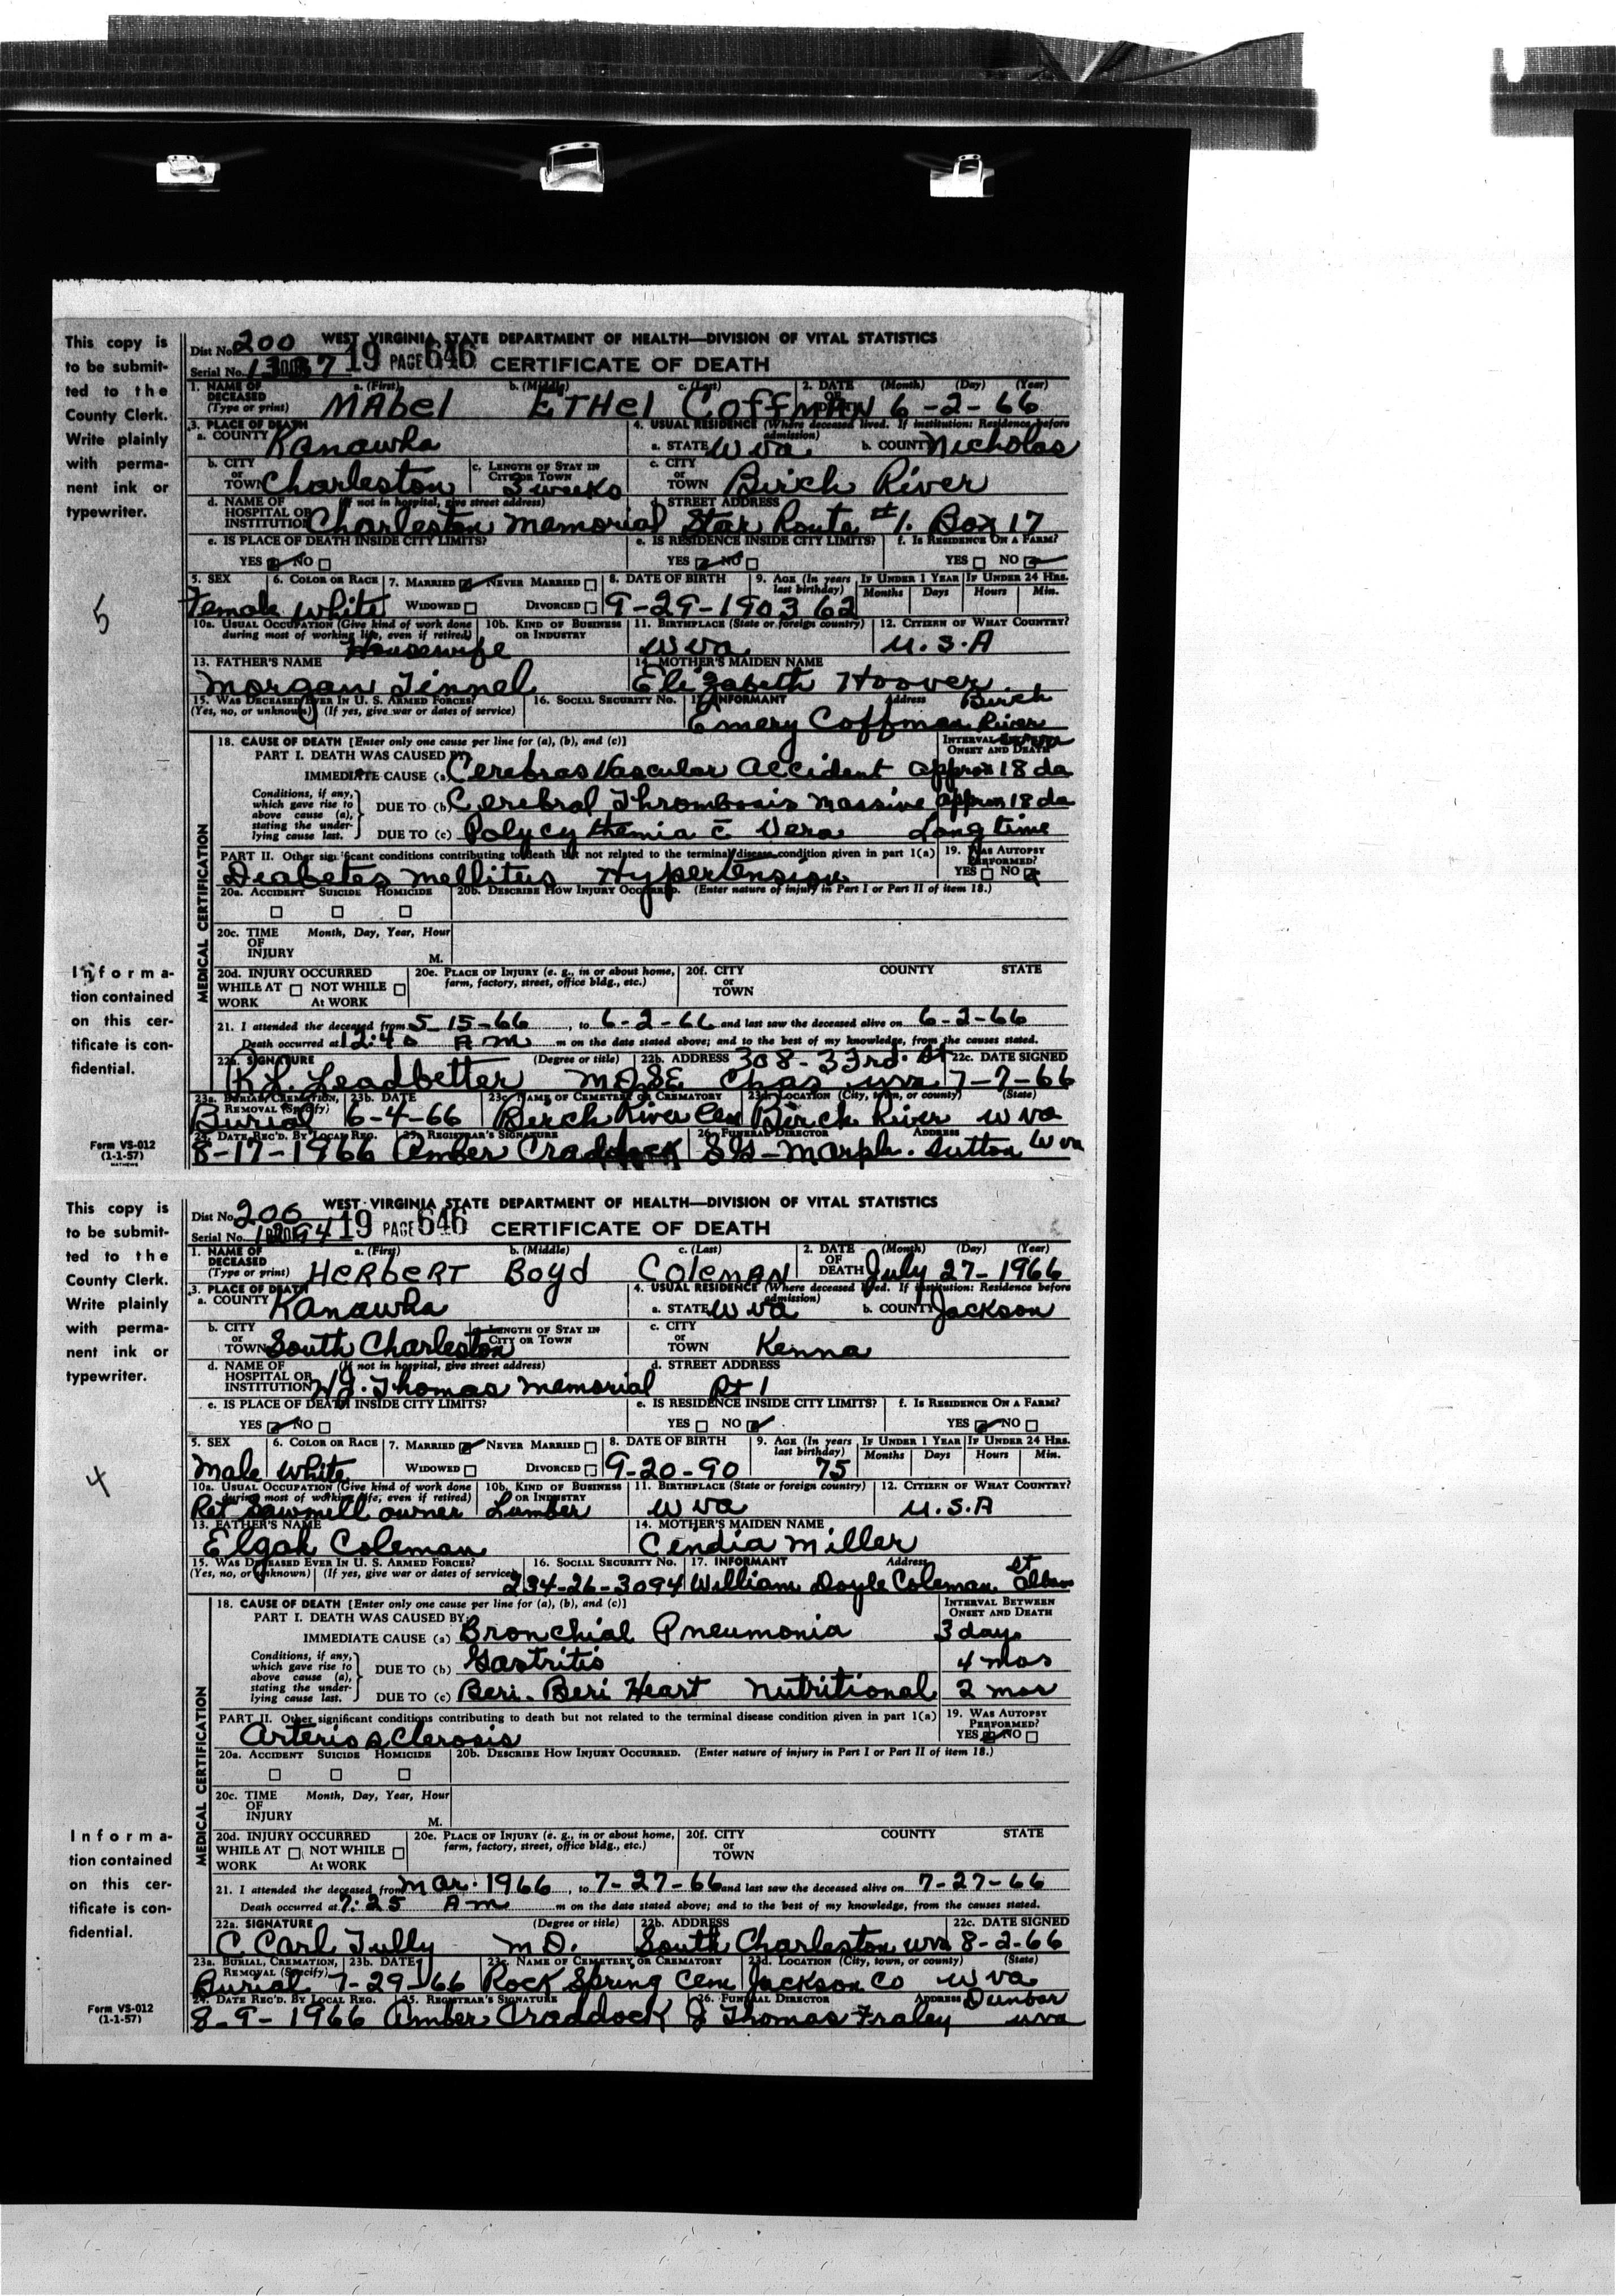 This copy is
to be submit-
ted to the
County Clerk.
Write plainly
with perma-
nent ink or
typewriter.
WEST VIRGINIA STATE DEPARTMENT OF HEALTH—DIVISION OF VITAL STATISTICS
Dist No. 200
19 PAGE 646 CERTIFICATE OF DEATH
Serial No.
1. NAME OF DECEASED (Type or print) a. (First) b. (Middle) c. (Last) 2. DATE (Month) (Day) (Year)
MAbel ETHel CoffmAN 6-2-66
3. PLACE OF DEATH 4. USUAL RESIDENCE (Where deceased lived. If institution: Residence before admission)
a. COUNTY Kanawha a. STATE W va. b. COUNTY Nicholas
b. CITY or TOWN Charleston c. LENGTH OF STAY IN CITY OR TOWN 3 weeks c. CITY or TOWN Birch River
d. NAME OF HOSPITAL OR INSTITUTION (If not in hospital, give street address) Charleston Memorial d. STREET ADDRESS Star Route #1. Box 17
e. IS PLACE OF DEATH INSIDE CITY LIMITS? e. IS RESIDENCE INSIDE CITY LIMITS? f. IS RESIDENCE ON A FARM?
YES NO YES NO YES NO
5. SEX 6. COLOR OR RACE 7. MARRIED NEVER MARRIED 8. DATE OF BIRTH 9. AGE (In years last birthday) IF UNDER 1 YEAR IF UNDER 24 HRS.
Months Days Hours Min.
Female White WIDOWED DIVORCED 9-29-1903 62
10a. USUAL OCCUPATION (Give kind of work done during most of working life, even if retired) 10b. KIND OF BUSINESS OR INDUSTRY 11. BIRTHPLACE (State or foreign country) 12. CITIZEN OF WHAT COUNTRY?
Housewife W va U.S.A
13. FATHER'S NAME 14. MOTHER'S MAIDEN NAME
Morgan Tinnel Elizabeth Hoover
15. WAS DECEASED EVER IN U. S. ARMED FORCES? 16. SOCIAL SECURITY No. 17. INFORMANT Address Birch
(Yes, no, or unknown) (If yes, give war or dates of service) Emery Coffman River
18. CAUSE OF DEATH [Enter only one cause per line for (a), (b), and (c)] INTERVAL BETWEEN ONSET AND DEATH
PART I. DEATH WAS CAUSED BY:
IMMEDIATE CAUSE (a) Cerebras Vascular Accident approx 18 da
Conditions, if any, which gave rise to above cause (a), stating the underlying cause last.
DUE TO (b) Cerebral Thrombosis Massive approx 18 da
DUE TO (c) Polycythemia c̄ Vera Long time
PART II. Other significant conditions contributing to death but not related to the terminal disease condition given in part 1(a) 19. WAS AUTOPSY PERFORMED?
Diabetes Mellitus Hypertension YES NO
20a. ACCIDENT SUICIDE HOMICIDE 20b. DESCRIBE HOW INJURY OCCURRED. (Enter nature of injury in Part I or Part II of item 18.)
20c. TIME OF INJURY Month, Day, Year, Hour
M.
MEDICAL CERTIFICATION
20d. INJURY OCCURRED 20e. PLACE OF INJURY (e. g., in or about home, farm, factory, street, office bldg., etc.) 20f. CITY or TOWN COUNTY STATE
WHILE AT WORK NOT WHILE At WORK
21. I attended the deceased from 5-15-66, to 6-2-66 and last saw the deceased alive on 6-2-66
Death occurred at 12:40 A m m on the date stated above; and to the best of my knowledge, from the causes stated.
22a. SIGNATURE (Degree or title) 22b. ADDRESS 308-33rd. St 22c. DATE SIGNED
R.L. Leadbetter Chas wva 7-7-66
23a. BURIAL, CREMATION, REMOVAL (Specify) 23b. DATE 23c. NAME OF CEMETERY OR CREMATORY 23d. LOCATION (City, town, or county) (State)
Burial 6-4-66 Birch River Cem Birch River W va
24. DATE REC'D. BY LOCAL REG. 25. REGISTRAR'S SIGNATURE 26. FUNERAL DIRECTOR ADDRESS
8-17-1966 Amber Craddock Sutton W va
5
Informa-
tion contained
on this cer-
tificate is con-
fidential.
Form VS-012
(1-1-57)
This copy is
to be submit-
ted to the
County Clerk.
Write plainly
with perma-
nent ink or
typewriter.
WEST VIRGINIA STATE DEPARTMENT OF HEALTH—DIVISION OF VITAL STATISTICS
Dist No. 200
19 PAGE 646 CERTIFICATE OF DEATH
Serial No.
1. NAME OF DECEASED (Type or print) a. (First) b. (Middle) c. (Last) 2. DATE OF DEATH (Month) (Day) (Year)
HERBERT Boyd ColeMAN July 27-1966
3. PLACE OF DEATH 4. USUAL RESIDENCE (Where deceased lived. If institution: Residence before admission)
a. COUNTY Kanawha a. STATE W va b. COUNTY Jackson
b. CITY or TOWN South Charleston c. LENGTH OF STAY IN CITY OR TOWN c. CITY or TOWN Kenna
d. NAME OF HOSPITAL OR INSTITUTION (If not in hospital, give street address) H.J. Thomas Memorial d. STREET ADDRESS Rt 1
e. IS PLACE OF DEATH INSIDE CITY LIMITS? e. IS RESIDENCE INSIDE CITY LIMITS? f. IS RESIDENCE ON A FARM?
YES NO YES NO YES NO
5. SEX 6. COLOR OR RACE 7. MARRIED NEVER MARRIED 8. DATE OF BIRTH 9. AGE (In years last birthday) IF UNDER 1 YEAR IF UNDER 24 HRS.
Months Days Hours Min.
Male White WIDOWED DIVORCED 9-20-90 75
10a. USUAL OCCUPATION (Give kind of work done during most of working life, even if retired) 10b. KIND OF BUSINESS OR INDUSTRY 11. BIRTHPLACE (State or foreign country) 12. CITIZEN OF WHAT COUNTRY?
Ret Sawmill owner Lumber W va U.S.A
13. FATHER'S NAME 14. MOTHER'S MAIDEN NAME
Elgah Coleman Cendia Miller
15. WAS DECEASED EVER IN U. S. ARMED FORCES? 16. SOCIAL SECURITY No. 17. INFORMANT Address St
(Yes, no, or unknown) (If yes, give war or dates of service) 234-26-3094 William Doyle Coleman Albans
18. CAUSE OF DEATH [Enter only one cause per line for (a), (b), and (c)] INTERVAL BETWEEN ONSET AND DEATH
PART I. DEATH WAS CAUSED BY:
IMMEDIATE CAUSE (a) Bronchial Pneumonia 3 days
Conditions, if any, which gave rise to above cause (a), stating the underlying cause last.
DUE TO (b) Gastritis 4 mos
DUE TO (c) Beri-Beri Heart Nutritional 2 mos
PART II. Other significant conditions contributing to death but not related to the terminal disease condition given in part 1(a) 19. WAS AUTOPSY PERFORMED?
Arteriosclerosis YES NO
20a. ACCIDENT SUICIDE HOMICIDE 20b. DESCRIBE HOW INJURY OCCURRED. (Enter nature of injury in Part I or Part II of item 18.)
20c. TIME OF INJURY Month, Day, Year, Hour
M.
MEDICAL CERTIFICATION
20d. INJURY OCCURRED 20e. PLACE OF INJURY (e. g., in or about home, farm, factory, street, office bldg., etc.) 20f. CITY or TOWN COUNTY STATE
WHILE AT WORK NOT WHILE At WORK
21. I attended the deceased from Mar. 1966, to 7-27-66 and last saw the deceased alive on 7-27-66
Death occurred at 7:25 A m m on the date stated above; and to the best of my knowledge, from the causes stated.
22a. SIGNATURE (Degree or title) 22b. ADDRESS 22c. DATE SIGNED
C Carl Tully M D. South Charleston wva 8-2-66
23a. BURIAL, CREMATION, REMOVAL (Specify) 23b. DATE 23c. NAME OF CEMETERY OR CREMATORY 23d. LOCATION (City, town, or county) (State)
Burial 7-29-66 Rock Spring Cem Jackson Co W va
24. DATE REC'D. BY LOCAL REG. 25. REGISTRAR'S SIGNATURE 26. FUNERAL DIRECTOR ADDRESS Dunbar
8-9-1966 Amber Craddock J Thomas Fraley wva
4
Informa-
tion contained
on this cer-
tificate is con-
fidential.
Form VS-012
(1-1-57)